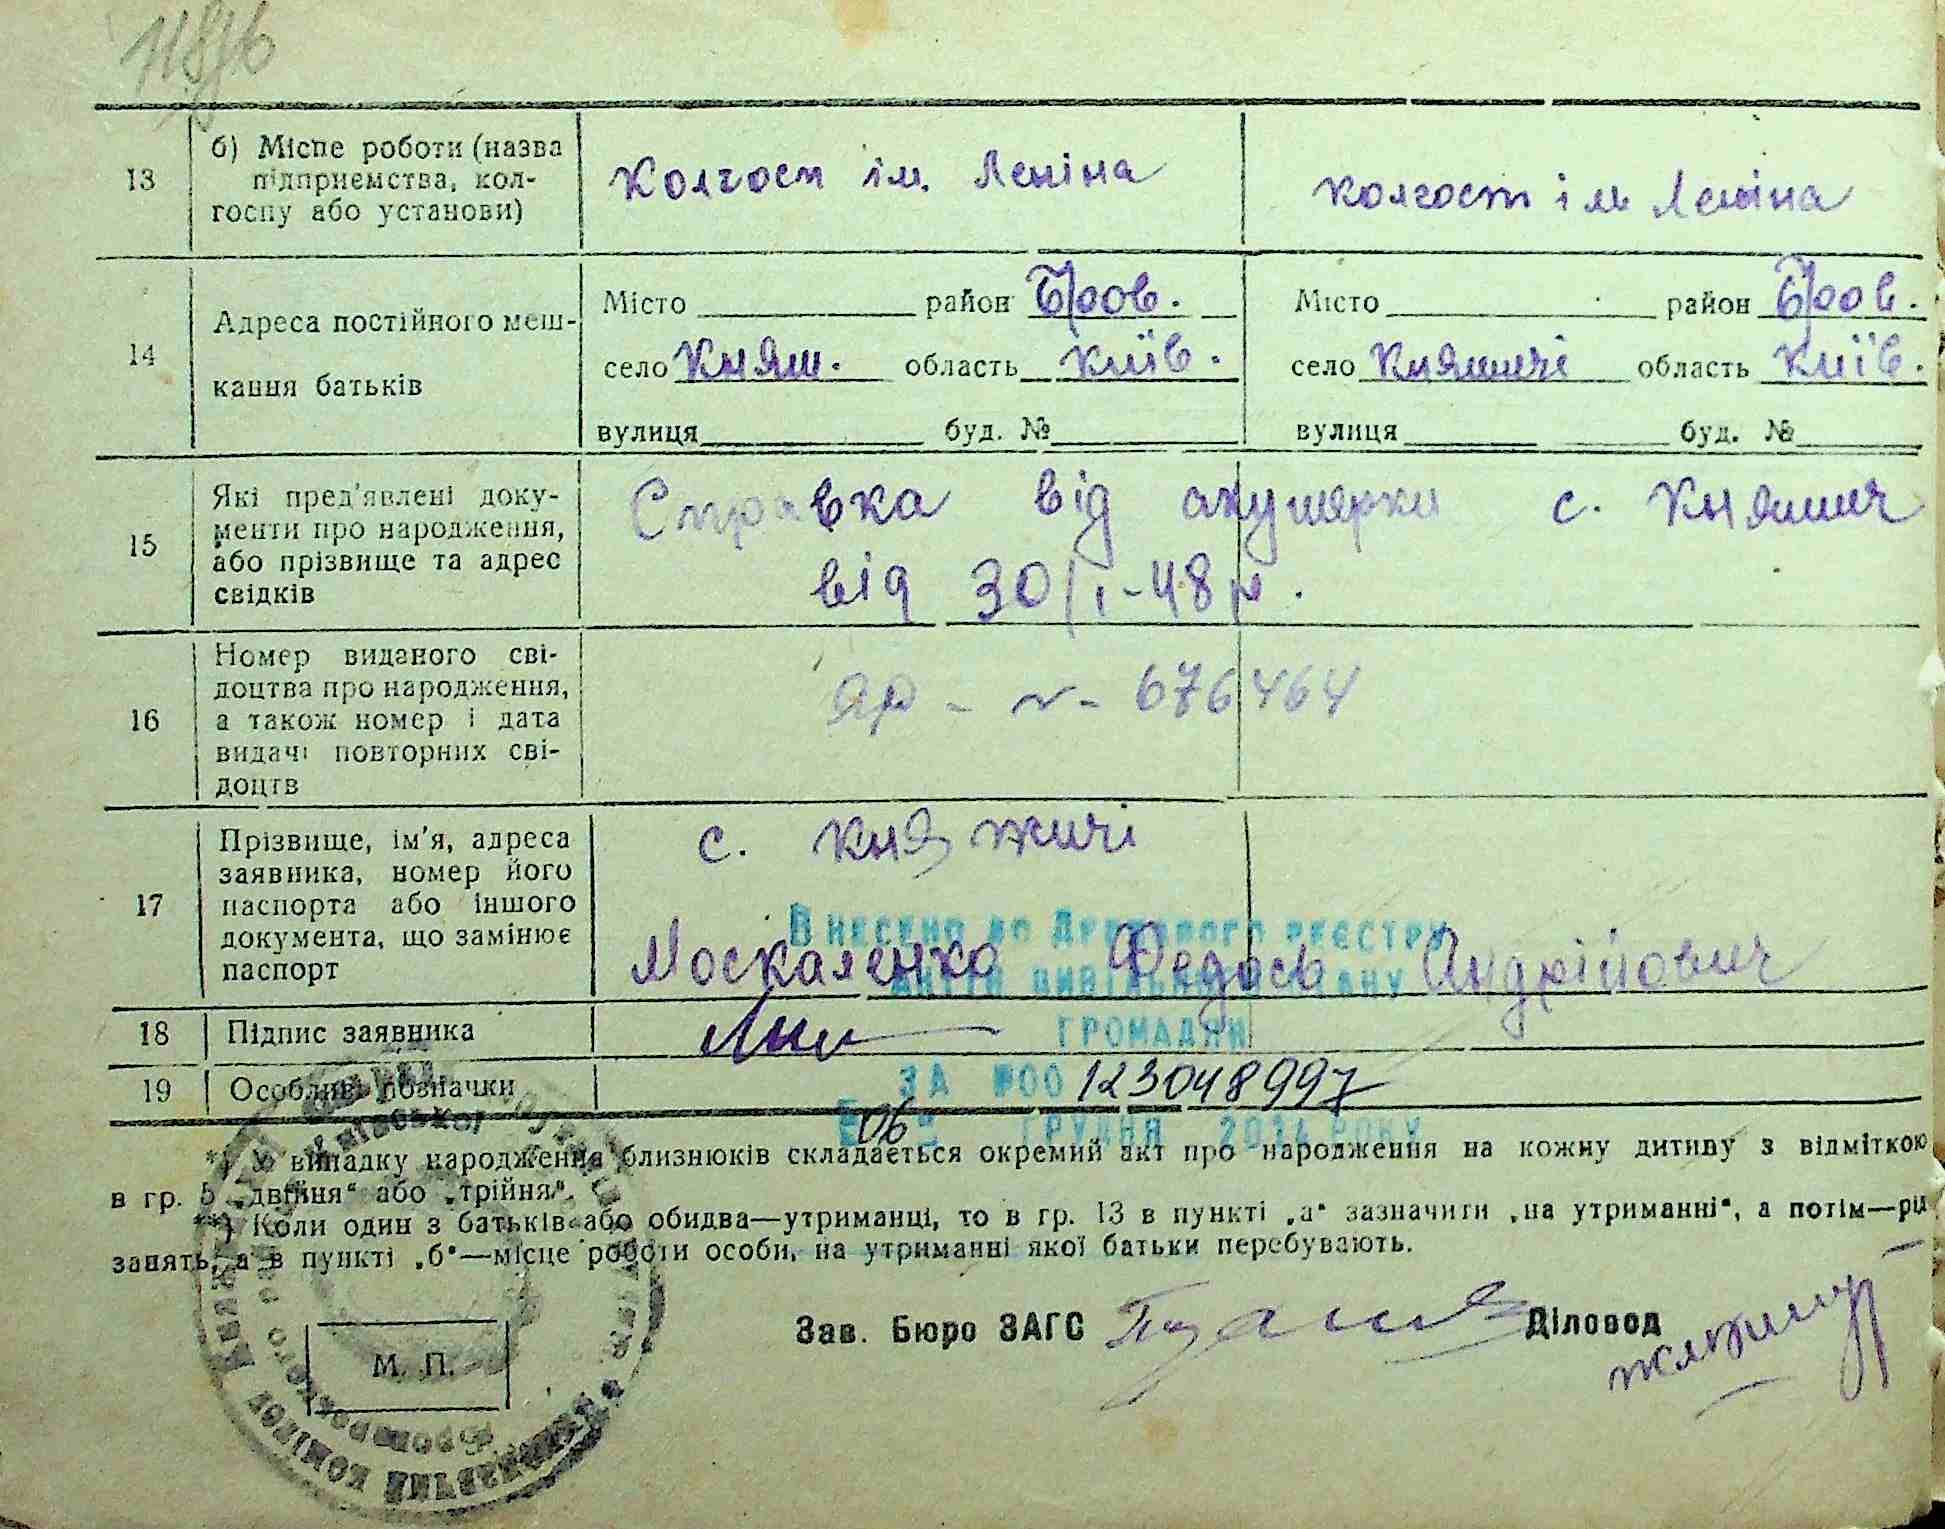 13 б) Місце роботи (назва
підприємства, кол-
госпу або установи)
Колгосп ім. Леніна
колгосп ім Леніна
14 Адреса постійного меш-
кання батьків
Місто район Бров.
село Княж. область Київ.
вулиця буд. №
Місто район Бров.
село Княжичі область Київ.
вулиця буд. №
15 Які пред'явлені доку-
менти про народження,
або прізвище та адрес
свідків
Справка від акушерки с. Княжич
від 30/I-48 р.
16 Номер виданого сві-
доцтва про народження,
а також номер і дата
видачі повторних сві-
доцтв
676464
17 Прізвище, ім'я, адреса
заявника, номер його
паспорта або іншого
документа, що замінює
паспорт
с. Княжичі
Москаленко Федось Андрійович
Внесено до Державного реєстру
актів цивільного стану
громадян
за №00123048997
06 грудня 2014 року
18 Підпис заявника
19 Особливі позначки
*) У випадку народження близнюків складається окремий акт про народження на кожну дитину з відміткою
в гр. 5 „двійня“ або „трійня“.
**) Коли один з батьків або обидва—утриманці, то в гр. 13 в пункті „а“ зазначити „на утриманні“, а потім—рід
занять, а в пункті „б“—місце роботи особи, на утриманні якої батьки перебувають.
Зав. Бюро ЗАГС Діловод
М. П.